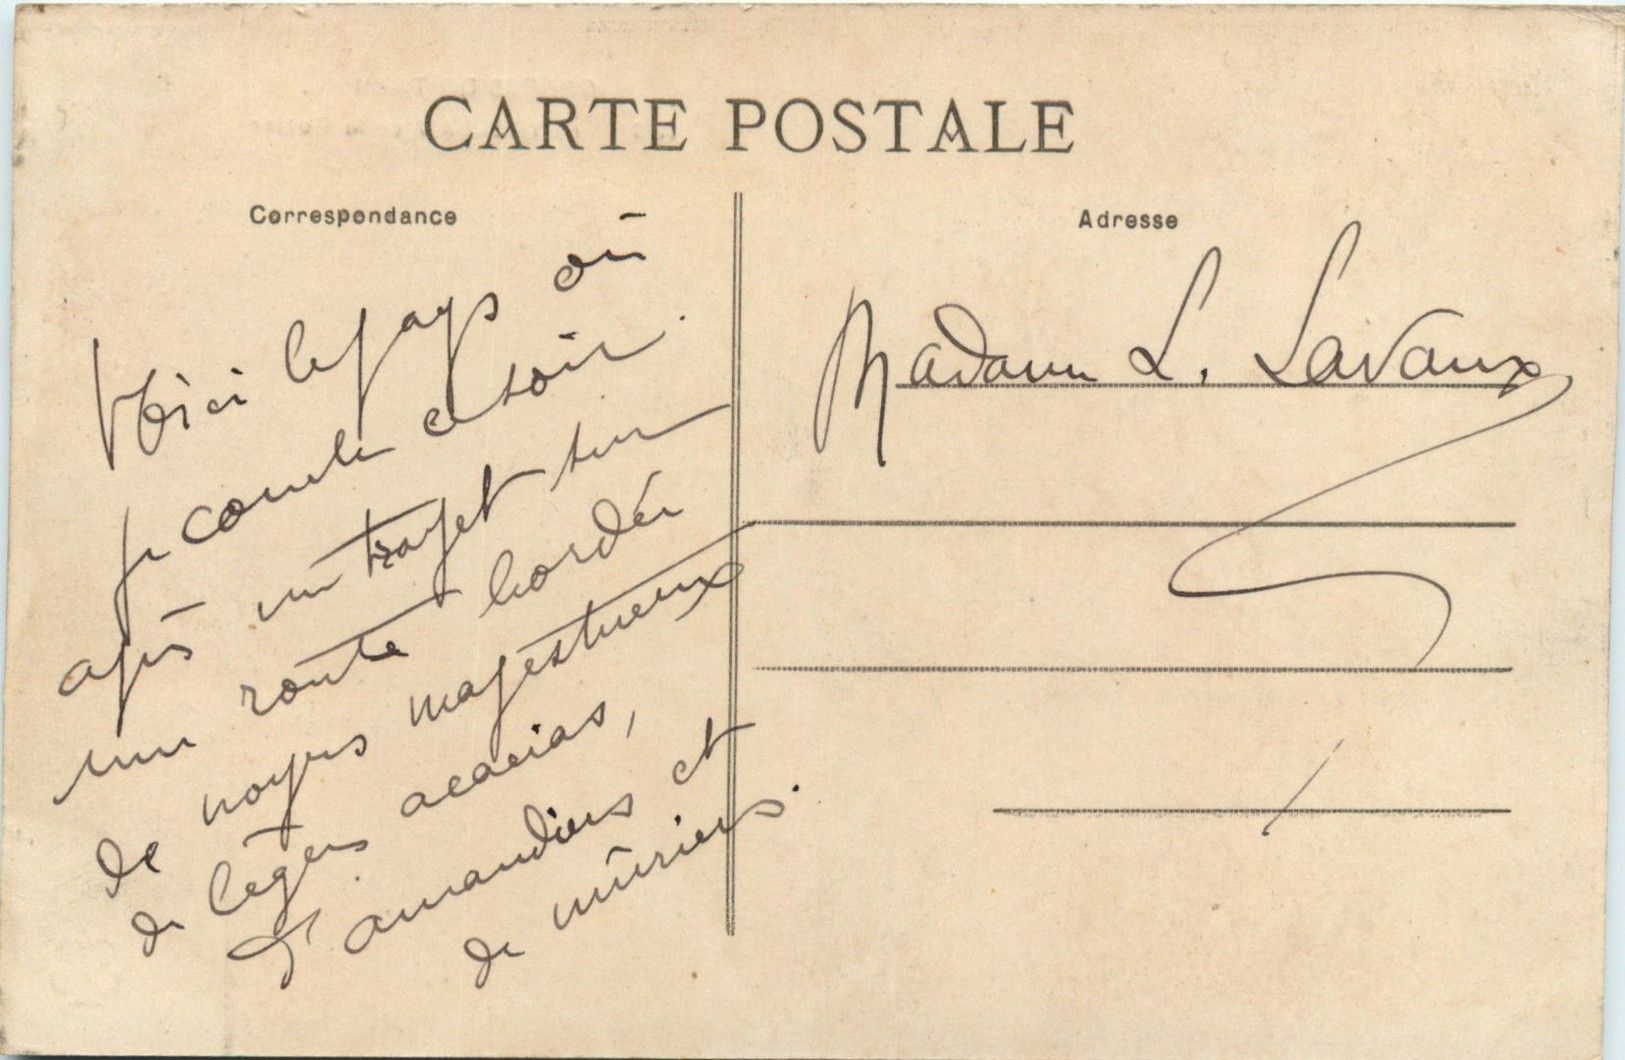 CARTE POSTALE
Correspondance
Adresse
Voici le pays où
je couche ce soir.
après un trajet sur
une route bordée
de noyers majestueux
de légers acacias,
d'amandiers et
de mûriers.
Madame L. Lavaux